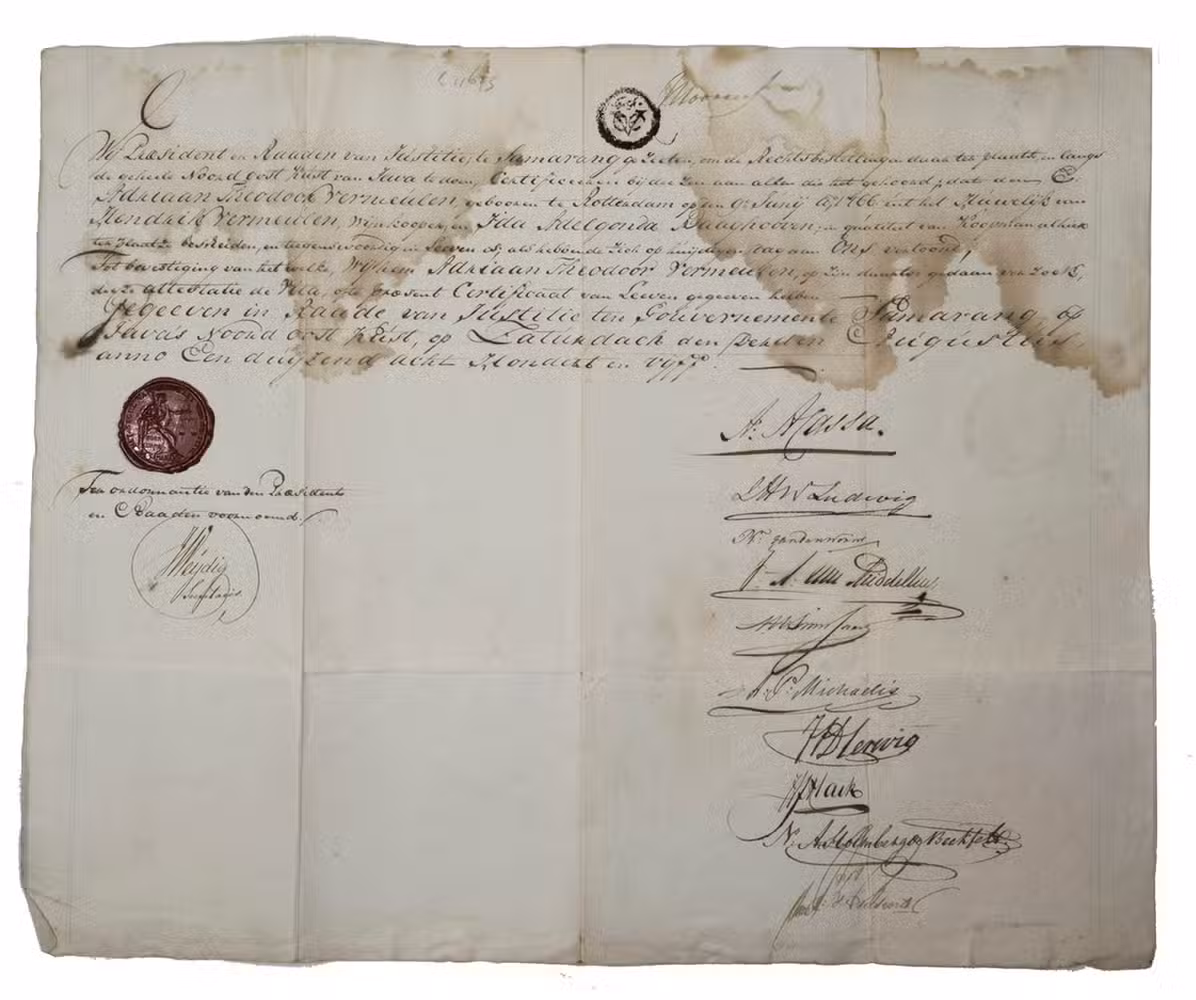 Wij Præsident en Raaden van Justitie te Samarang gezeten, om de Rechtsbestellingen daar ter plaatse, en langs
de geheele Noord Oost Kust van Java te doen, Certificeeren bij deezen aan allen die het gehoord, dat den E.
Adriaan Theodoor Vermeulen, gebooren te Rotterdam op den 9e Junij Ao 1766 uit het Huwelijk van
Hendrik Vermeulen, wijnkooper, en Ida Adelgonda in qualiteit van Koopman alhier
ter plaatze bescheiden, en tegenswoordig in leeven is, als hebbende zich op huijdigen dag aan Ons vertoond;
Tot bevestiging van het welke, Wij hem Adriaan Theodoor Vermeulen, op zijn daartoe gedaan verzoek,
deeze attestatie de Vita, ofte præsent Certificaat van Leeven gegeeven hebben
Gegeeven in Raade van Justitie ten Gouvernemente Samarang, op
Java's Noord Oost Kust, op Zaturdach den Augustus,
anno Een duijzend acht Hondert en vijff.
A. Cassa.
Ter ordonnantie van den Præsident
en Raaden voornoemd.
L H W Ludwig
Weijdig
Secretaris
P. Michaelis
Herwig
Hack
N. A. Holmberg de Beckfelt